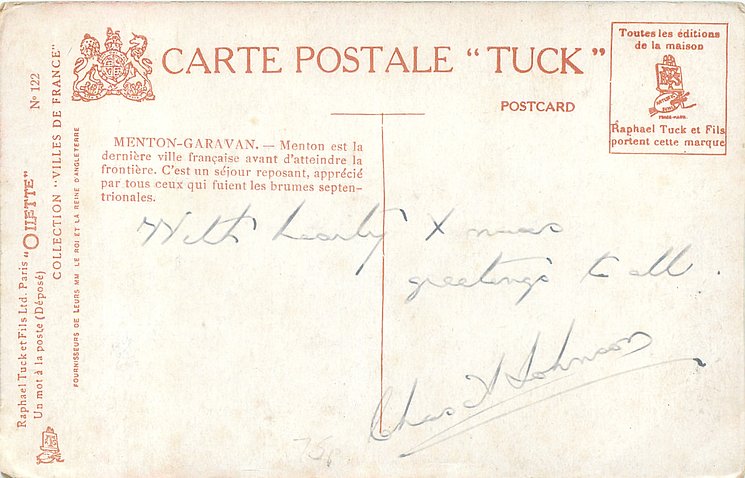 CARTE POSTALE "TUCK"
POSTCARD
Toutes les éditions
de la maison
RAPHAEL TUCK
TRADE-MARK
Raphael Tuck et Fils
portent cette marque
MENTON-GARAVAN. — Menton est la
dernière ville française avant d'atteindre la
frontière. C'est un séjour reposant, apprécié
par tous ceux qui fuient les brumes septen-
trionales.
With hearty Xmas
greetings to all.
Chas H Johnson
Raphael Tuck et Fils Ltd. Paris "OILETTE"
Un mot à la poste (Déposé)
COLLECTION "VILLES DE FRANCE" No 122
FOURNISSEURS DE LEURS MM LE ROI ET LA REINE D'ANGLETERRE